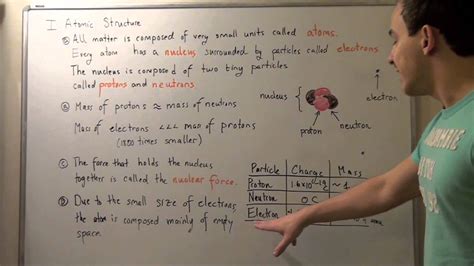 I Atomic Structure
Ⓐ All matter is composed of very small units called atoms.
Every atom has a nucleus surrounded by particles called electrons.
The nucleus is composed of two tiny particles
called protons and neutrons.
electron
nucleus
proton
neutron
Ⓑ Mass of protons ≈ mass of neutrons
Mass of electrons <<< mass of protons
times smaller)
Ⓒ The force that holds the nucleus
together is called the nuclear force.
Ⓓ Due to the small size of electrons,
the atom is composed mainly of empty
space.
Particle Charge Mass
Proton ~ 1
Neutron 0 C
Electron